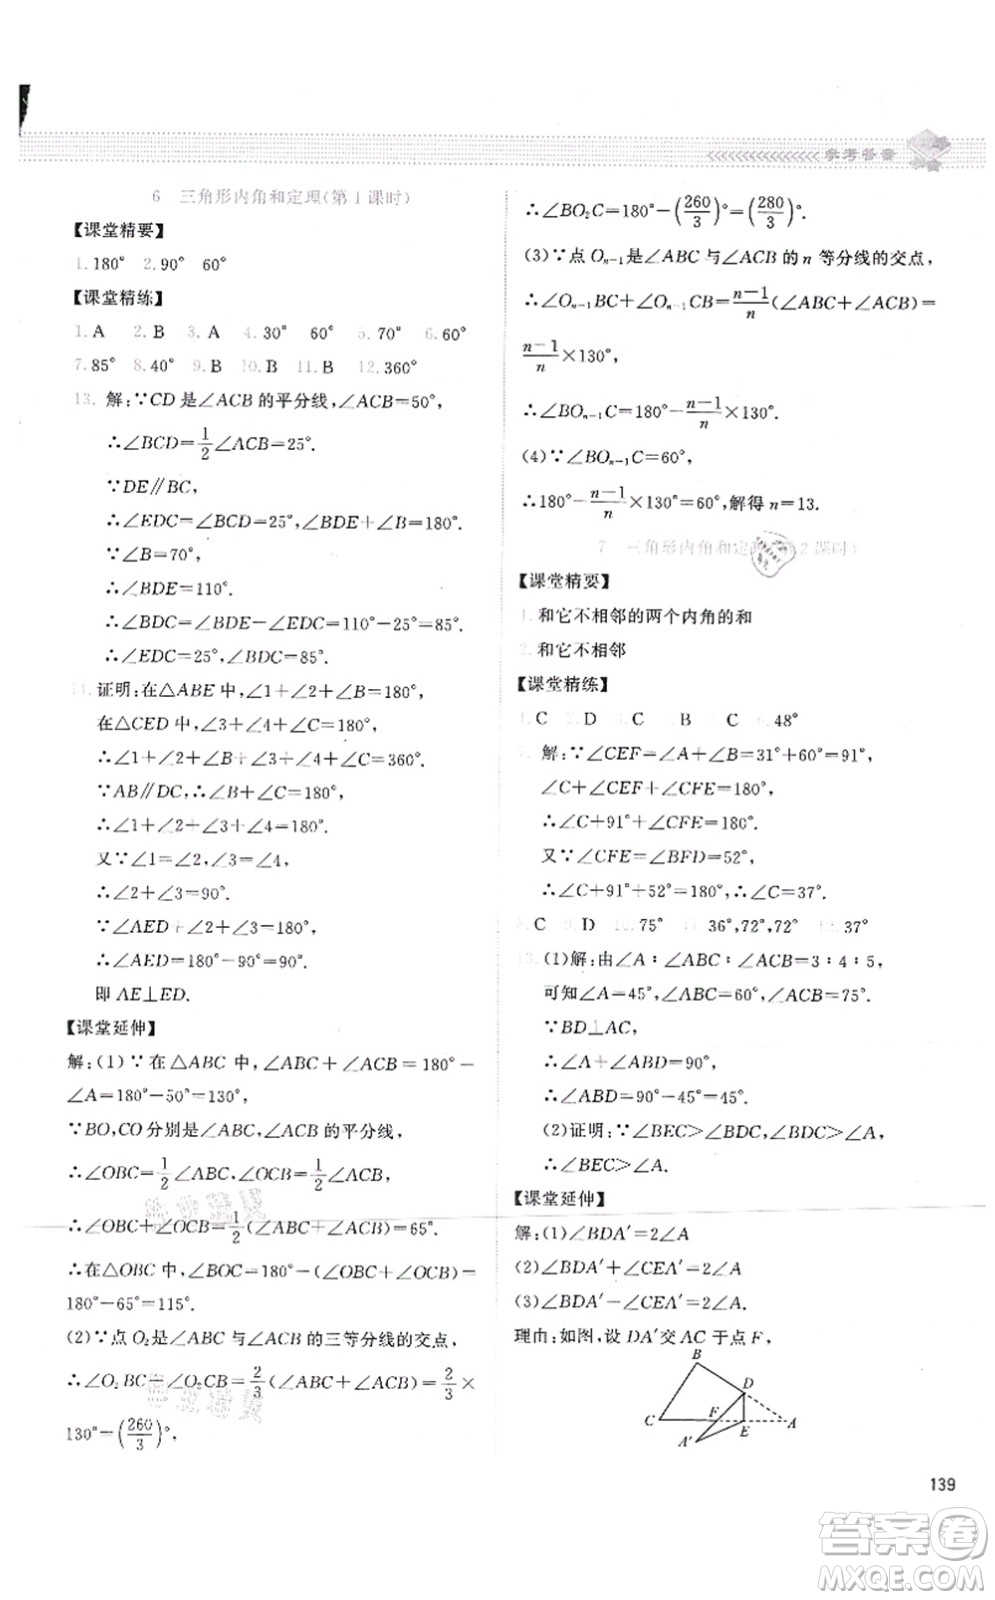 参考答案
6 三角形内角和定理(第1课时)
【课堂精要】
1.180° 2.90° 60°
【课堂精练】
1.A 2.B 3.A 4.30° 60° 5.70° 6.60°
7.85° 8.40° 9.B 10.B 11.B 12.360°
13. 解:∵CD是∠ACB的平分线,∠ACB=50°,
∴∠BCD=1/2∠ACB=25°.
∵DE∥BC,
∴∠EDC=∠BCD=25°,∠BDE+∠B=180°.
又∵∠B=70°,
∴∠BDE=110°.
∴∠BDC=∠BDE-∠EDC=110°-25°=85°.
∴∠EDC=25°,∠BDC=85°.
14. 证明:在△ABE中,∠1+∠2+∠B=180°,
在△CED中,∠3+∠4+∠C=180°,
∴∠1+∠2+∠B+∠3+∠4+∠C=360°.
∵AB∥DC,∴∠B+∠C=180°,
∴∠1+∠2+∠3+∠4=180°.
又∵∠1=∠2,∠3=∠4,
∴∠2+∠3=90°.
∵∠AED+∠2+∠3=180°,
∴∠AED=180°-90°=90°.
即AE⊥ED.
【课堂延伸】
解:(1)∵在△ABC中,∠ABC+∠ACB=180°-
∠A=180°-50°=130°,
∵BO,CO分别是∠ABC,∠ACB的平分线,
∴∠OBC=1/2∠ABC,∠OCB=1/2∠ACB.
∴∠OBC+∠OCB=1/2(∠ABC+∠ACB)=65°.
∴在△OBC中,∠BOC=180°-(∠OBC+∠OCB)=
180°-65°=115°.
(2)∵点O₂是∠ABC与∠ACB的三等分线的交点,
∴∠O₂BC+∠O₂CB=2/3(∠ABC+∠ACB)=2/3×
130°=(260/3)°,
∴∠BO₂C=180°-(260/3)°=(280/3)°.
(3)∵点Oₙ₋₁是∠ABC与∠ACB的n等分线的交点,
∴∠Oₙ₋₁BC+∠Oₙ₋₁CB=(n-1)/n(∠ABC+∠ACB)=
(n-1)/n×130°,
∴∠BOₙ₋₁C=180°-(n-1)/n×130°.
(4)∵∠BOₙ₋₁C=60°,
∴180°-(n-1)/n×130°=60°,解得n=13.
7 三角形内角和定理(第2课时)
【课堂精要】
1.和它不相邻的两个内角的和
2.和它不相邻
【课堂精练】
1.C 2.D 3.C 4.B 5.C 6.48°
7. 解:∵∠CEF=∠A+∠B=31°+60°=91°,
∠C+∠CEF+∠CFE=180°,
∴∠C+91°+∠CFE=180°.
又∵∠CFE=∠BFD=52°,
∴∠C+91°+52°=180°,∴∠C=37°.
8.C 9.D 10.75° 11.36°,72°,72° 12.37°
13. (1)解:由∠A∶∠ABC∶∠ACB=3∶4∶5,
可知∠A=45°,∠ABC=60°,∠ACB=75°.
∵BD⊥AC,
∴∠A+∠ABD=90°,
∴∠ABD=90°-45°=45°.
(2)证明:∵∠BEC>∠BDC,∠BDC>∠A,
∴∠BEC>∠A.
【课堂延伸】
解:(1)∠BDA′=2∠A
(2)∠BDA′+∠CEA′=2∠A
(3)∠BDA′-∠CEA′=2∠A.
理由:如图,设DA′交AC于点F,
B
D
C F E A
A′
139
答案卷
MXQE.COM